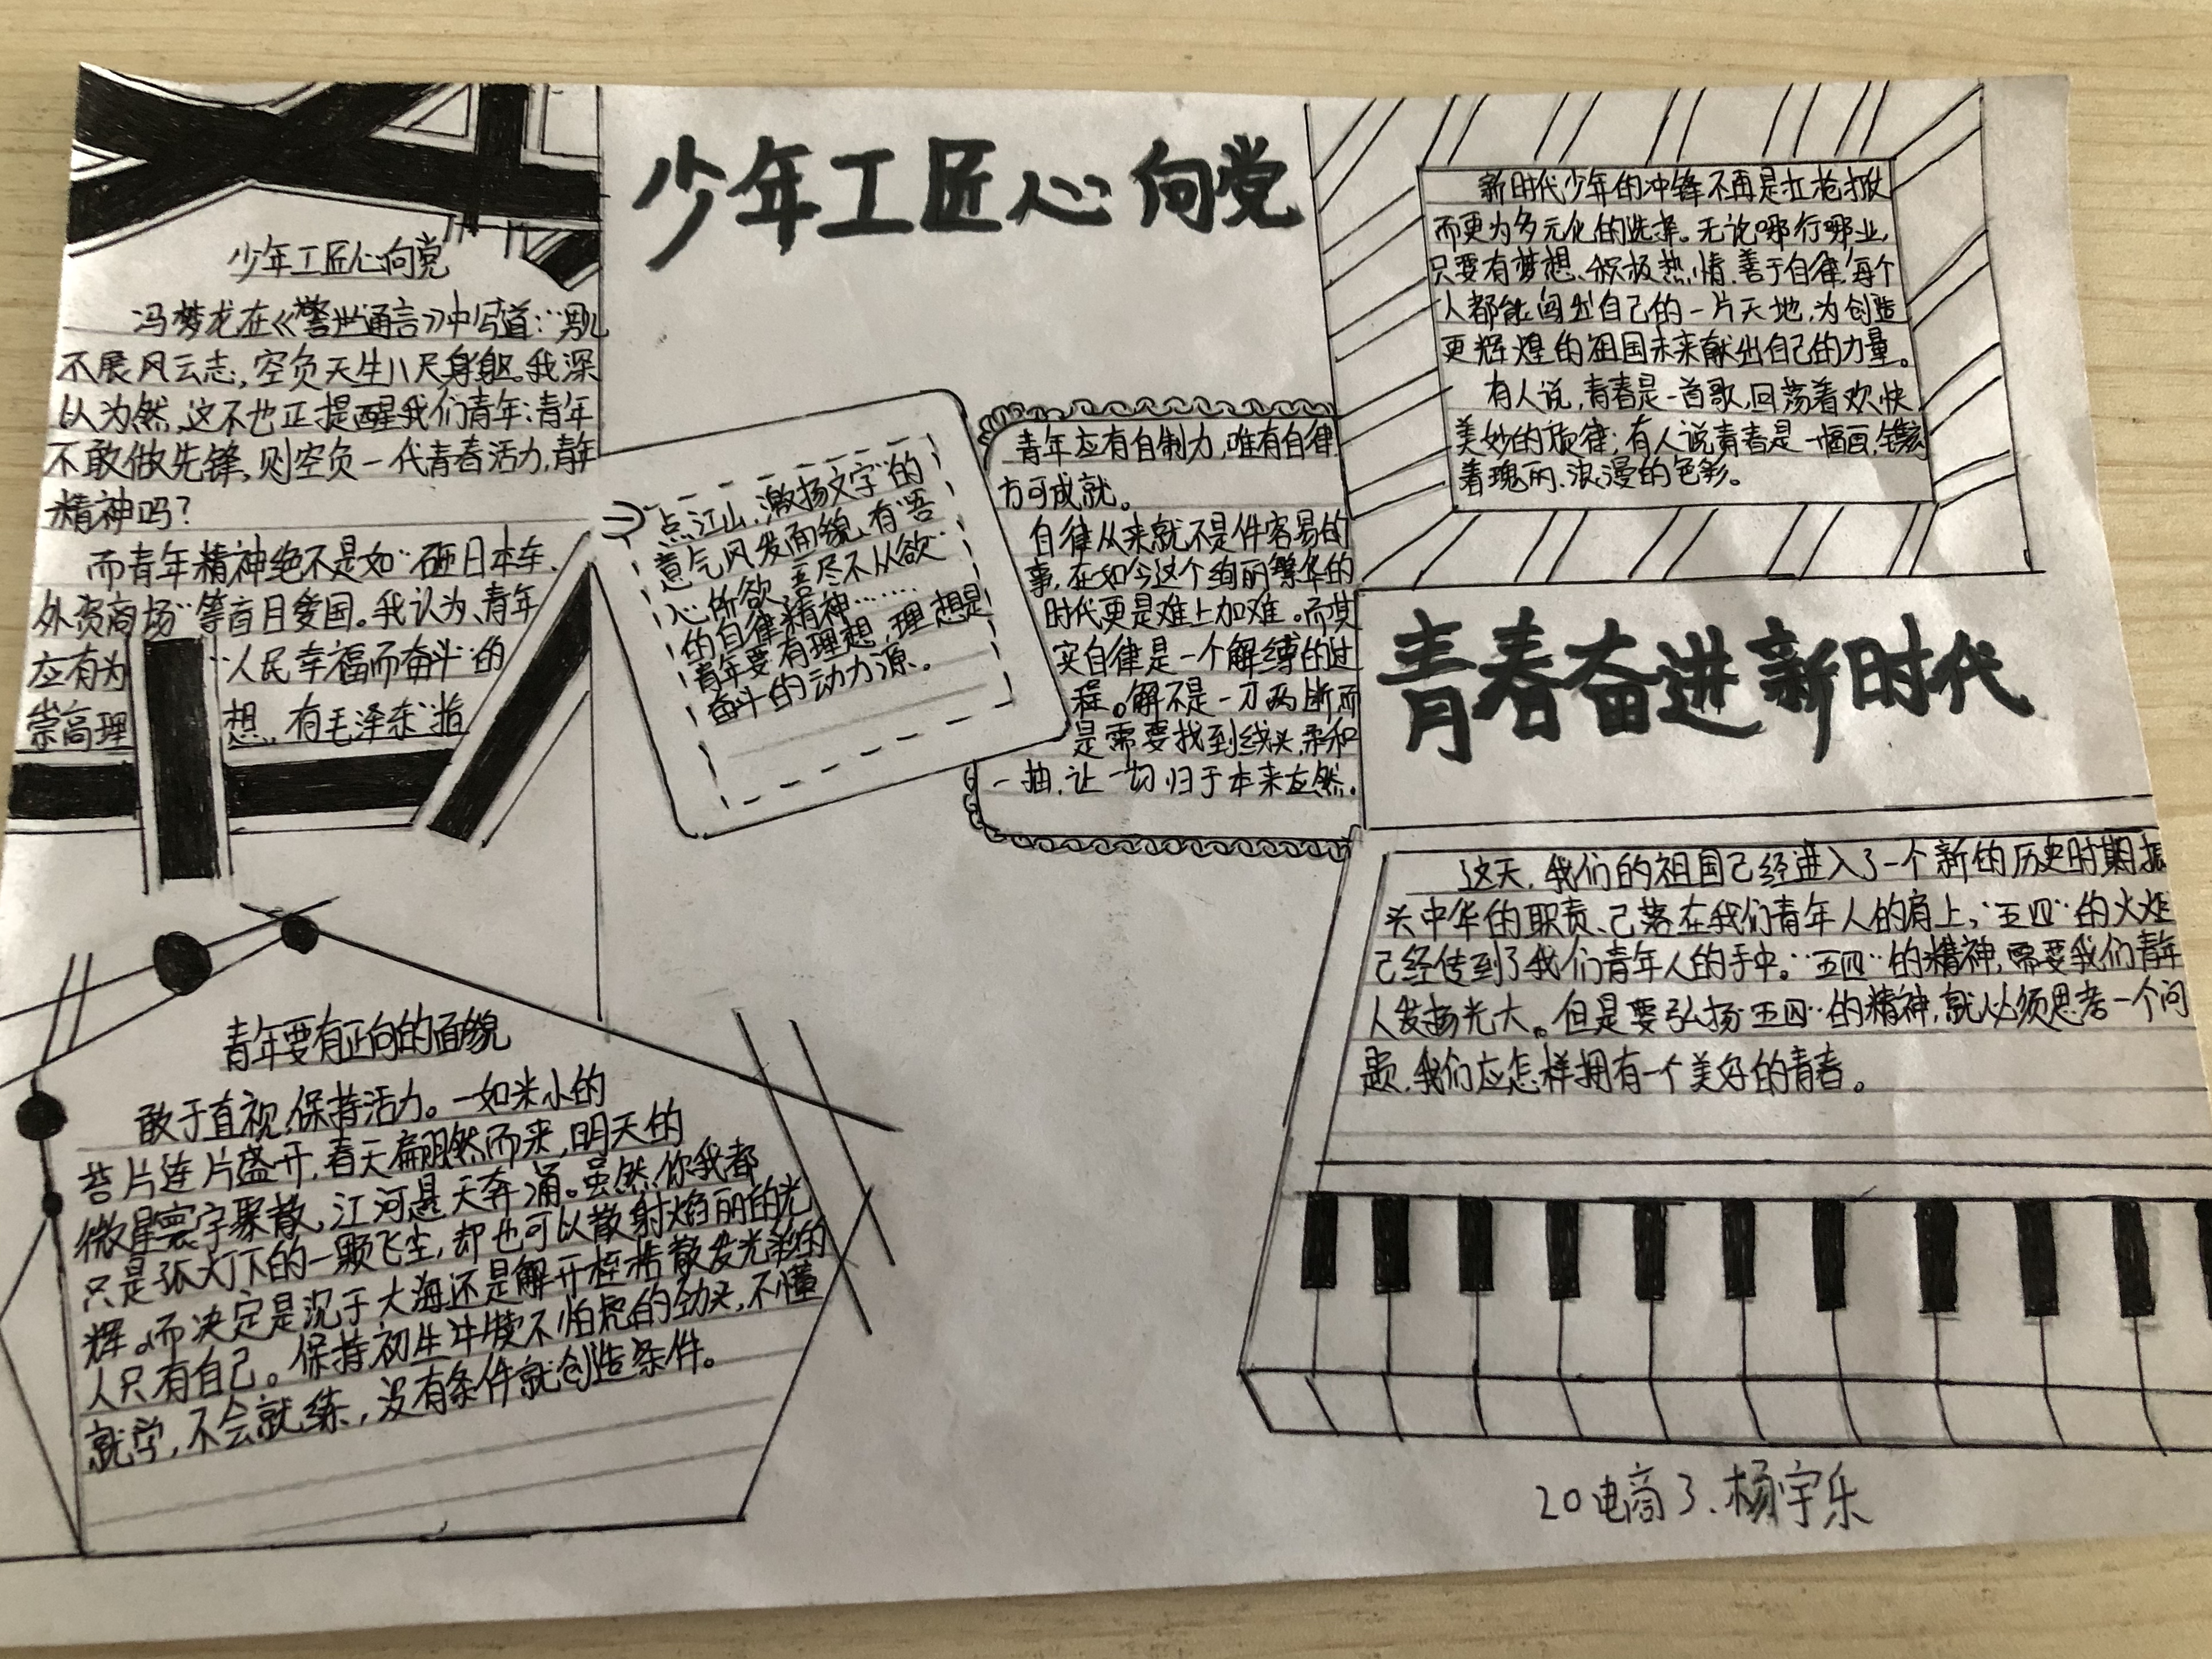 少年工匠心向党
少年工匠心向党
冯梦龙在《警世通言》中写道：“男儿
不展风云志，空负天生八尺身躯。我深
以为然，这不也正提醒我们青年：青年
不敢做先锋，则空负一代青春活力，青年
精神吗？
而青年精神绝不是如“砸日本车、
外资商场”等盲目爱国。我认为，青年
应有为“人民幸福而奋斗”的
崇高理想，有毛泽东“指
点江山，激扬文字”的
意气风发面貌，有“吾
心所欲，吾尽不从欲”
的自律精神……
青年要有理想，理想是
奋斗的动力源。
青年应有自制力，唯有自律
方可成就。
自律从来就不是件容易的
事，在如今这个绚丽繁华的
时代更是难上加难。而其
实自律是一个解缚的过
程。解不是一刀两断而
是需要找到线头，柔和
一抽，让一切归于本来
新时代少年的冲锋不再是扛枪
而更为多元化的选择。无论哪行哪业，
只要有梦想、积极热情、善于自律，每个
人都能闯出自己的一片天地，为创造
更辉煌的祖国未来献出自己的力量。
有人说，青春是一首歌，回荡着欢快
美妙的旋律；有人说青春是一幅画，镌刻
着瑰丽、浪漫的色彩。
青春奋进新时代
这天，我们的祖国已经进入了一个新的历史时期，振
兴中华的职责、已落在我们青年人的肩上，“五四”的火炬
已经传到了我们青年人的手中。“五四”的精神，需要我们青年
人发扬光大。但是要弘扬“五四”的精神，就必须思考一个问
题，我们应怎样拥有一个美好的青春。
青年要有正向的面貌
敢于直视，保持活力。一如米小的
苔片连片盛开，春天翩然而来，明天的
微星寰宇聚散，江河是天奔涌。虽然，你我都
只是孤灯下的一颗飞尘，却也可以散射焰丽的光
辉。而决定是沉于大海还是解开桎梏散发光彩的
人只有自己。保持初生牛犊不怕虎的劲头，不懂
就学，不会就练，没有条件就创造条件。
20电商3.杨宇乐